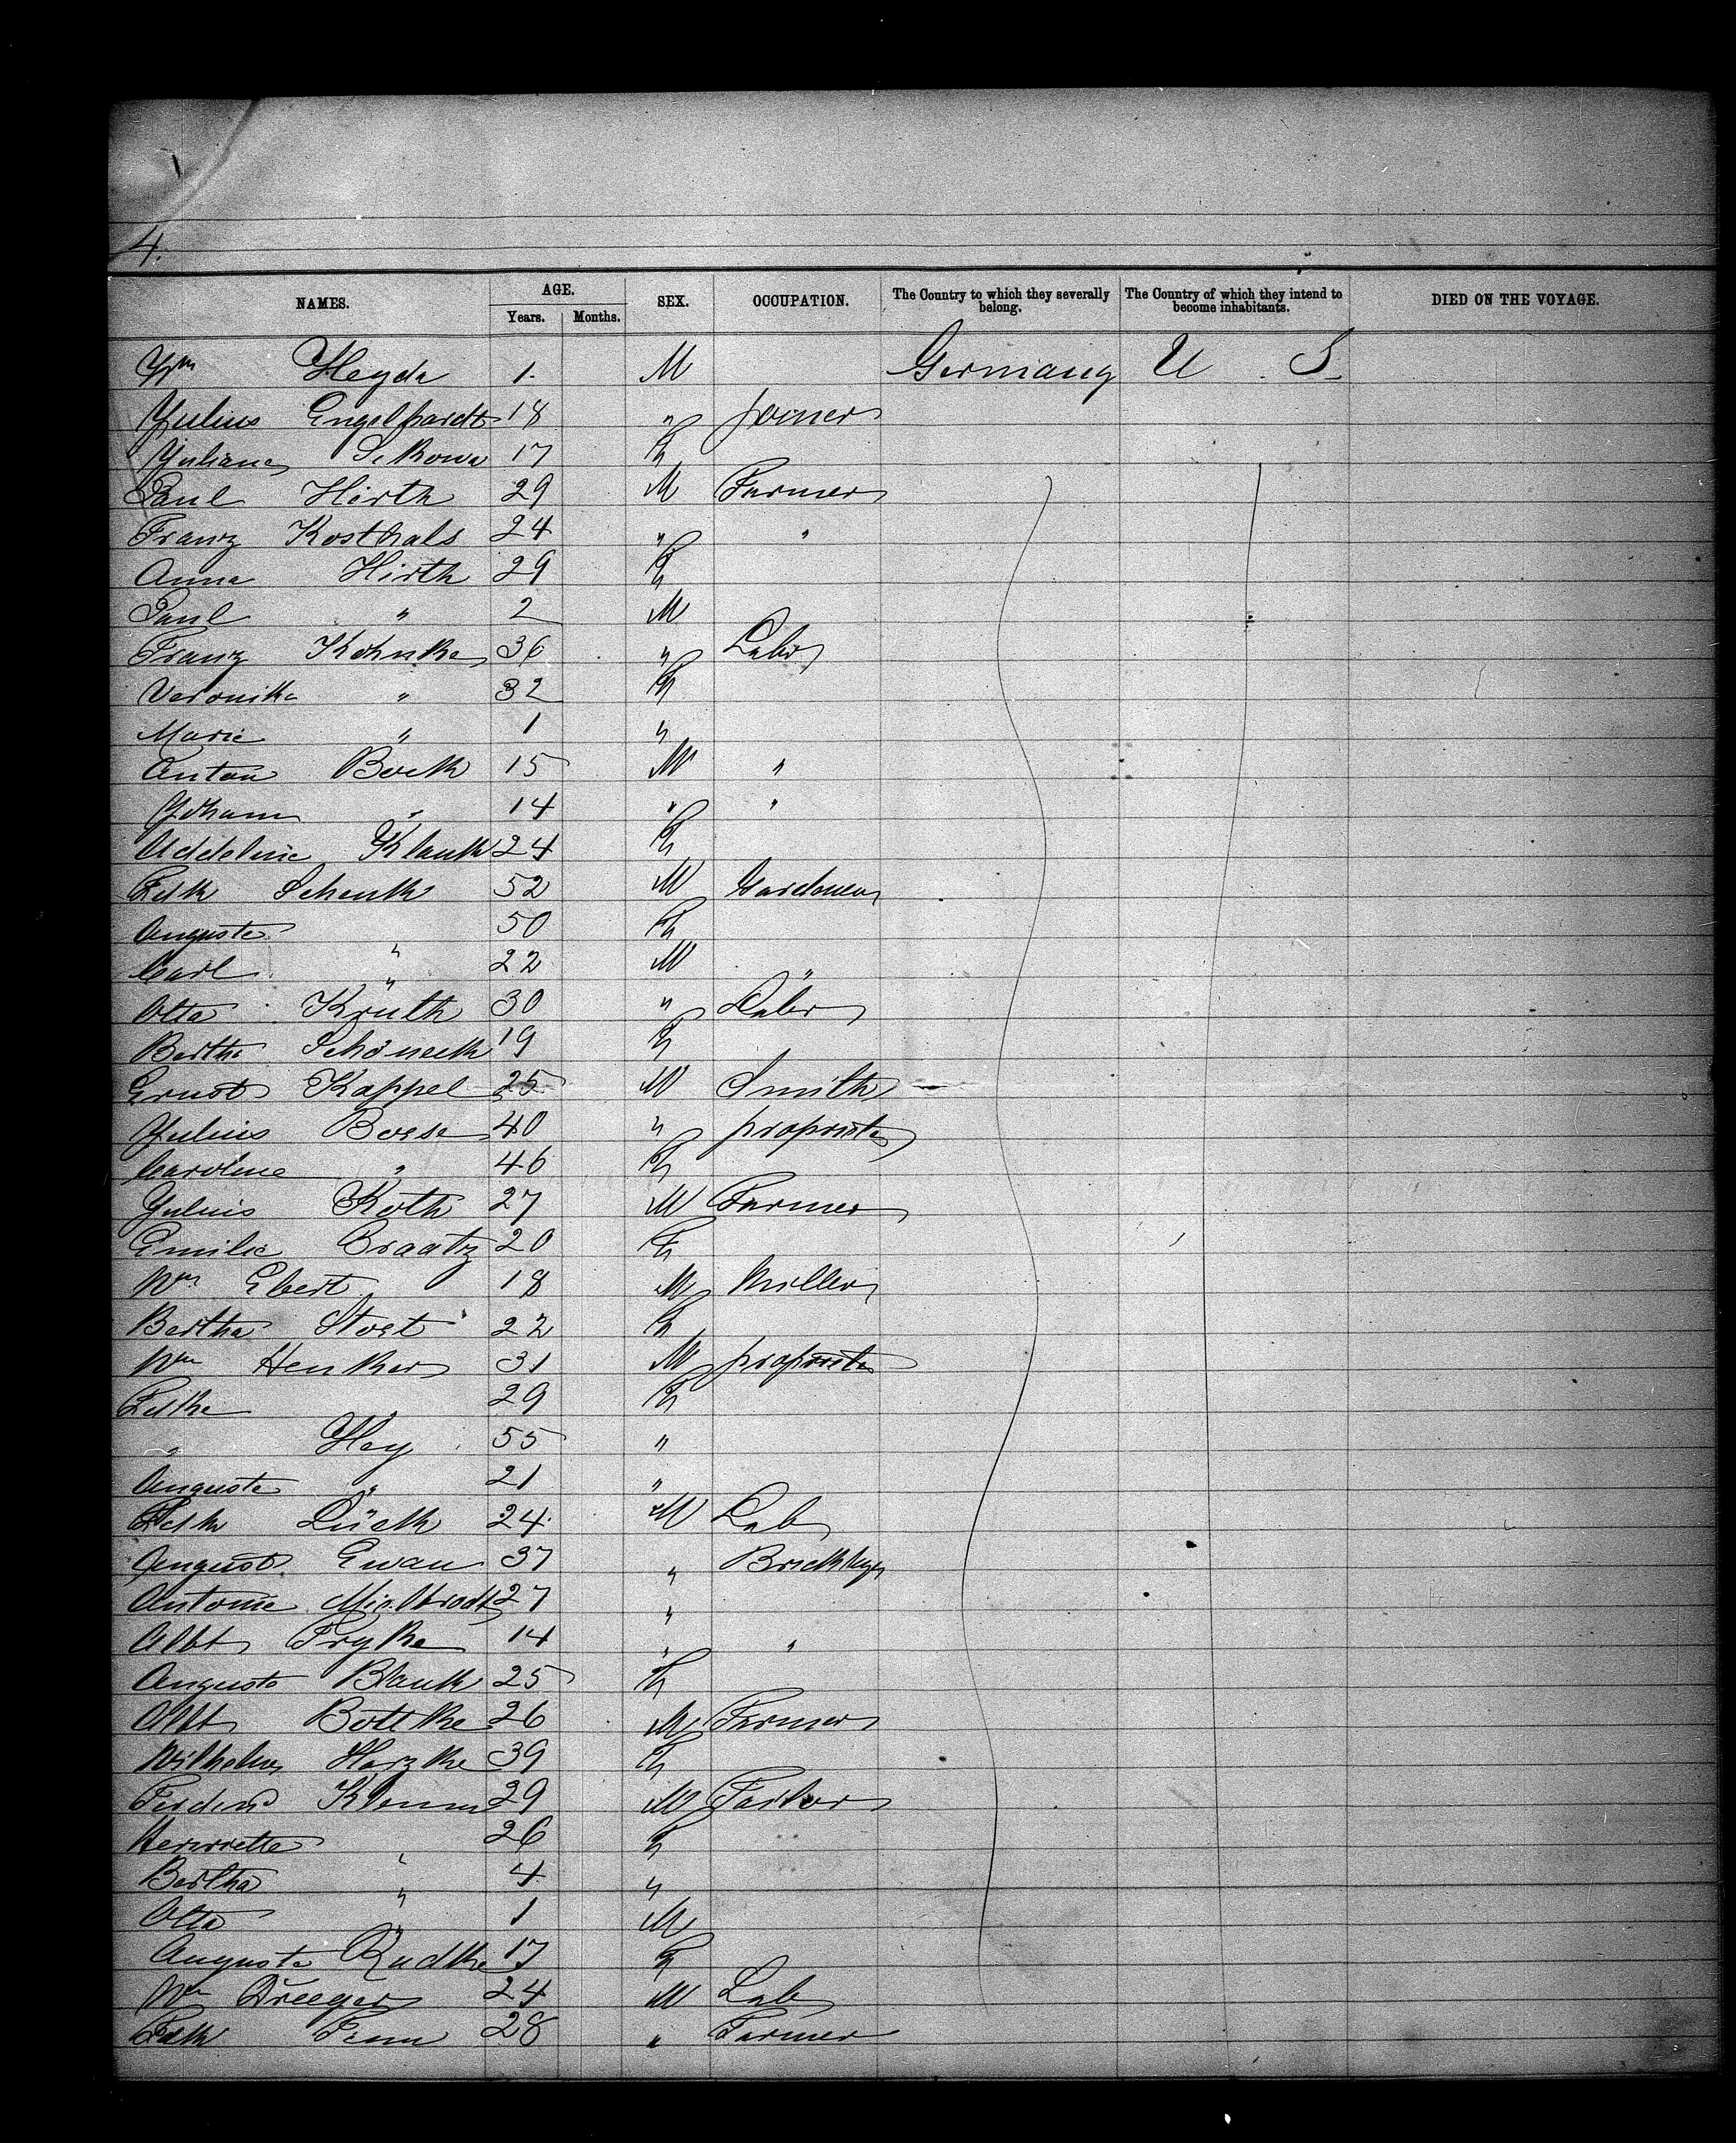 4.
NAMES. AGE. Years. Months. SEX. OCCUPATION. The Country to which they severally belong. The Country of which they intend to become inhabitants. DIED ON THE VOYAGE.
Wm Heyda 1 M Germany U S
Julius Engelhardt 18 " joiner
Juliana 17 F
Paul Hirth 29 M Farmer
Franz Kosthals 24 " "
Anna Hirth 29 F
Paul " 2 M
Franz Kohnke 36 " Labr
Veronika " 32 F
Marie " 1 "
Anton Bock 15 M "
Johann " 14 " "
Addeline Klauk 24 F
Fdk Schenk 52 M Gardener
Auguste " 50 F
Carl " 22 M "
Otto Kruth 30 " Labr
Bertha Schöneck 19 F
Ernst Kappel 25 M Smith
Julius Boese 40 " propriet
Caroline " 46 F
Julius Koth 27 M Farmer
Emilie Braatz 20 F
Wm Ebert 18 M Miller
Bertha Stoet 22 F
Wm Henker 31 M propriet
Fdke " 29 F
" Hey 55 "
Auguste " 21 "
Fdk Lück 24 M Lab
August Ewan 37 " Bricklayer
Antonie 27 "
Albt Pryke 14 " "
Auguste Blank 25 F
Albt Bottke 26 M Farmer
Wilhelm Harzke 39 F
Ferdind Klemm 29 M
Henriette " 26 F
Bertha " 4 "
Otto " 1 M
Auguste Radke 17 F
Wm Dreeger 24 M Lab
Fdk 28 " Farmer